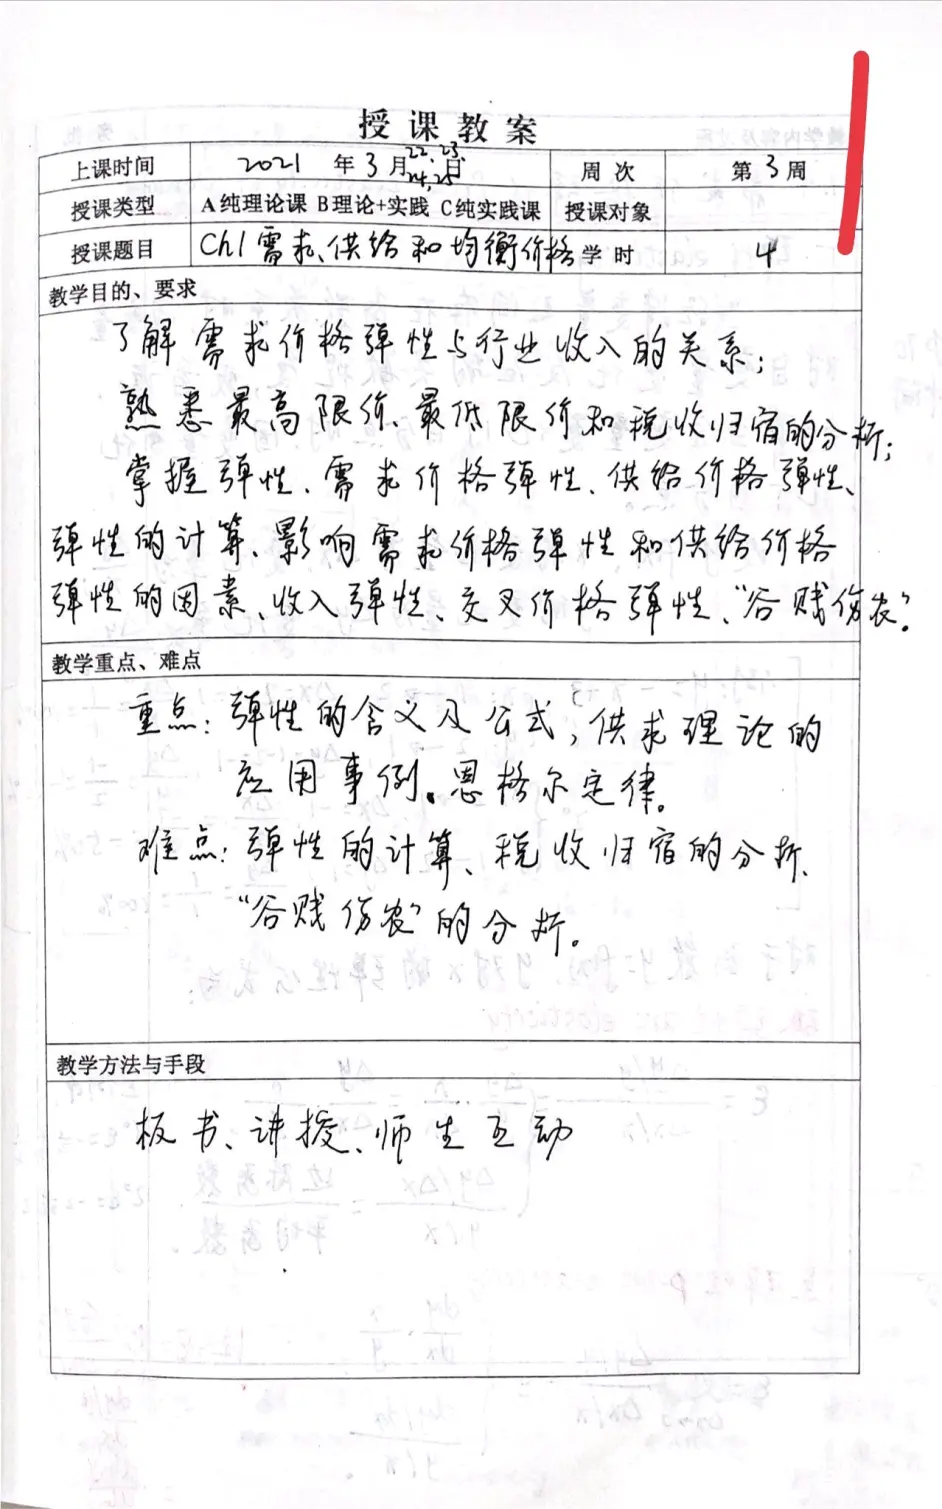 授课教案
上课时间 2021 年 3 月 22.23. 24,25 日 周次 第 3 周
授课类型 A纯理论课 B理论+实践 C纯实践课 授课对象
授课题目 Ch1 需求、供给和均衡价格 学时 4
教学目的、要求
了解需求价格弹性与行业收入的关系;
熟悉最高限价、最低限价和税收归宿的分析;
掌握弹性、需求价格弹性、供给价格弹性、
弹性的计算、影响需求价格弹性和供给价格
弹性的因素、收入弹性、交叉价格弹性、“谷贱伤农”.
教学重点、难点
重点: 弹性的含义及公式, 供求理论的
应用事例。恩格尔定律。
难点: 弹性的计算、税收归宿的分析、
“谷贱伤农”的分析。
教学方法与手段
板书、讲授、师生互动